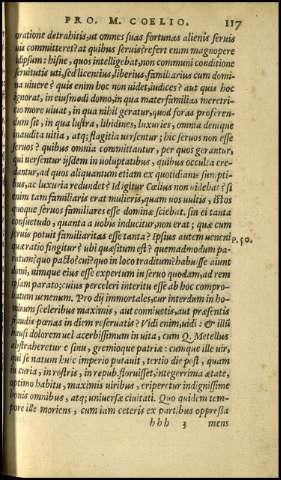 PRO. M. COELIO. 117
oratione detrahitis, ut omnes suas fortunas alienis seruis
committeret? at quibus seruis? refert enim magnopere
id ipsum: hisne, quos intelligebat, non communi conditione
seruitutis uti, sed licentius, liberius, familiarius cum domi-
na uiuere? quis enim hoc non uidet, iudices? aut quis hoc
ignorat, in eiusmodi domo, in qua materfamilias meretri-
cio more uiuat, in qua nihil geratur, quod foras proferen-
dum sit, in qua lustra, libidines, luxuries, omnia denique
inaudita uitia, atq; flagitia uersentur; hic seruos non esse
seruos? quibus omnia committantur, per quos gerantur,
qui uersentur ijsdem in uoluptatibus, quibus occulta cre-
dantur, ad quos aliquantum etiam ex quotidianis sumpti-
bus, ac luxuria redundet? Id igitur Cœlius non uidebat? si
enim tam familiaris erat mulieris, quam uos uultis, istos
quoque seruos familiares esse dominæ sciebat. sin ei tanta
consuetudo, quanta a uobis inducitur, non erat; quæ cum
seruis potuit familiaritas esse tanta? Ipsius autem ueneni P. 50.
quæ ratio fingitur? ubi quæsitum est? quemadmodum pa-
ratum? quo pacto? cui? quo in loco traditum? habuisse aiunt
domi, uimque eius esse expertum in seruo quodam, ad rem
ipsam parato; cuius perceleri interitu esse ab hoc compro-
batum uenenum. Pro dij immortales, cur interdum in ho-
minum sceleribus maximis, aut conniuetis, aut præsentis
fraudis pœnas in diem reseruatis? Vidi enim, uidi: & illum
hausi dolorem uel acerbissimum in uita, cum Q. Metellus
abstraheretur e sinu, gremioque patriæ: cumque ille uir,
qui se natum huic imperio putauit, tertio die post, quam
in curia, in rostris, in repub. floruisset, integerrima ætate,
optimo habitu, maximis uiribus, eriperetur indignissime
bonis omnibus, atq; uniuersæ ciuitati. Quo quidem tem-
pore ille moriens, cum iam ceteris ex partibus oppressa
hhh 3 mens